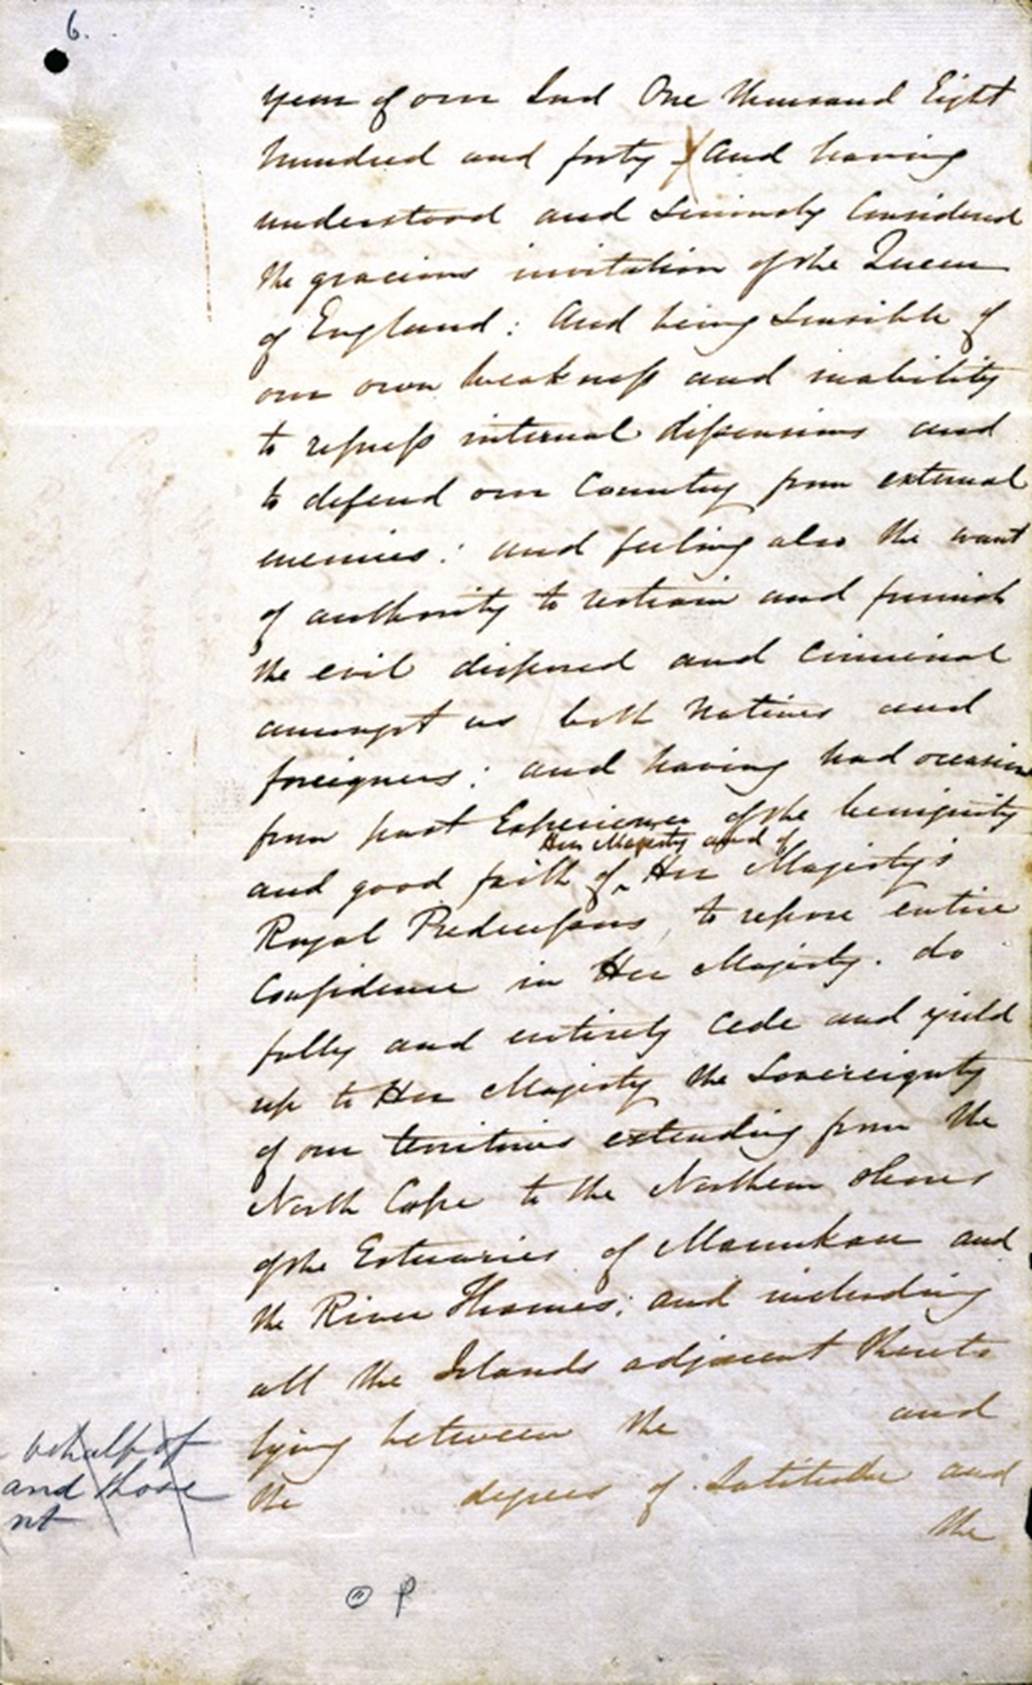 6.
year of our Lord One thousand Eight
hundred and forty And having
understood and Seriously Considered
the gracious invitation of the Queen
of England: And being Sensible of
our own weakness and inability
to repress internal dissensions and
to defend our Country from external
enemies: and feeling also the want
of authority to restrain and punish
the evil disposed and Criminal
amongst us both Natives and
foreigners: and having had occasion
from past Experience of the benignity
Her Majesty and of
and good faith of ^ Her Majesty's
Royal Predecessors, to repose entire
Confidence in Her Majesty. do
fully and entirely Cede and yield
up to Her Majesty the Sovereignty
of our territories extending from the
North Cape to the Northern shores
of the Estuaries of Manukau and
the River Thames; and including
all the Islands adjacent thereto
lying between the and
the degrees of Latitude and
the
behalf of
and those
nt